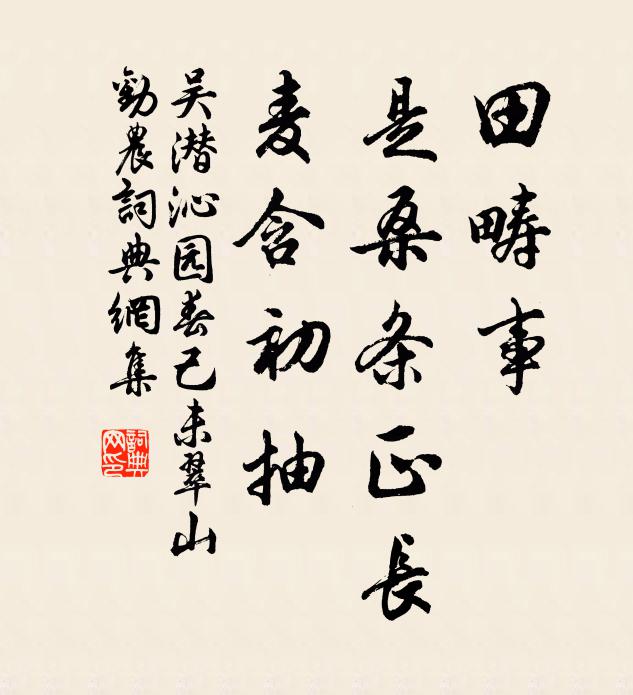 田畴事
是桑条正长
麦含初抽
吴潜沁园春己未翠山
劝农词典网集
词典网印